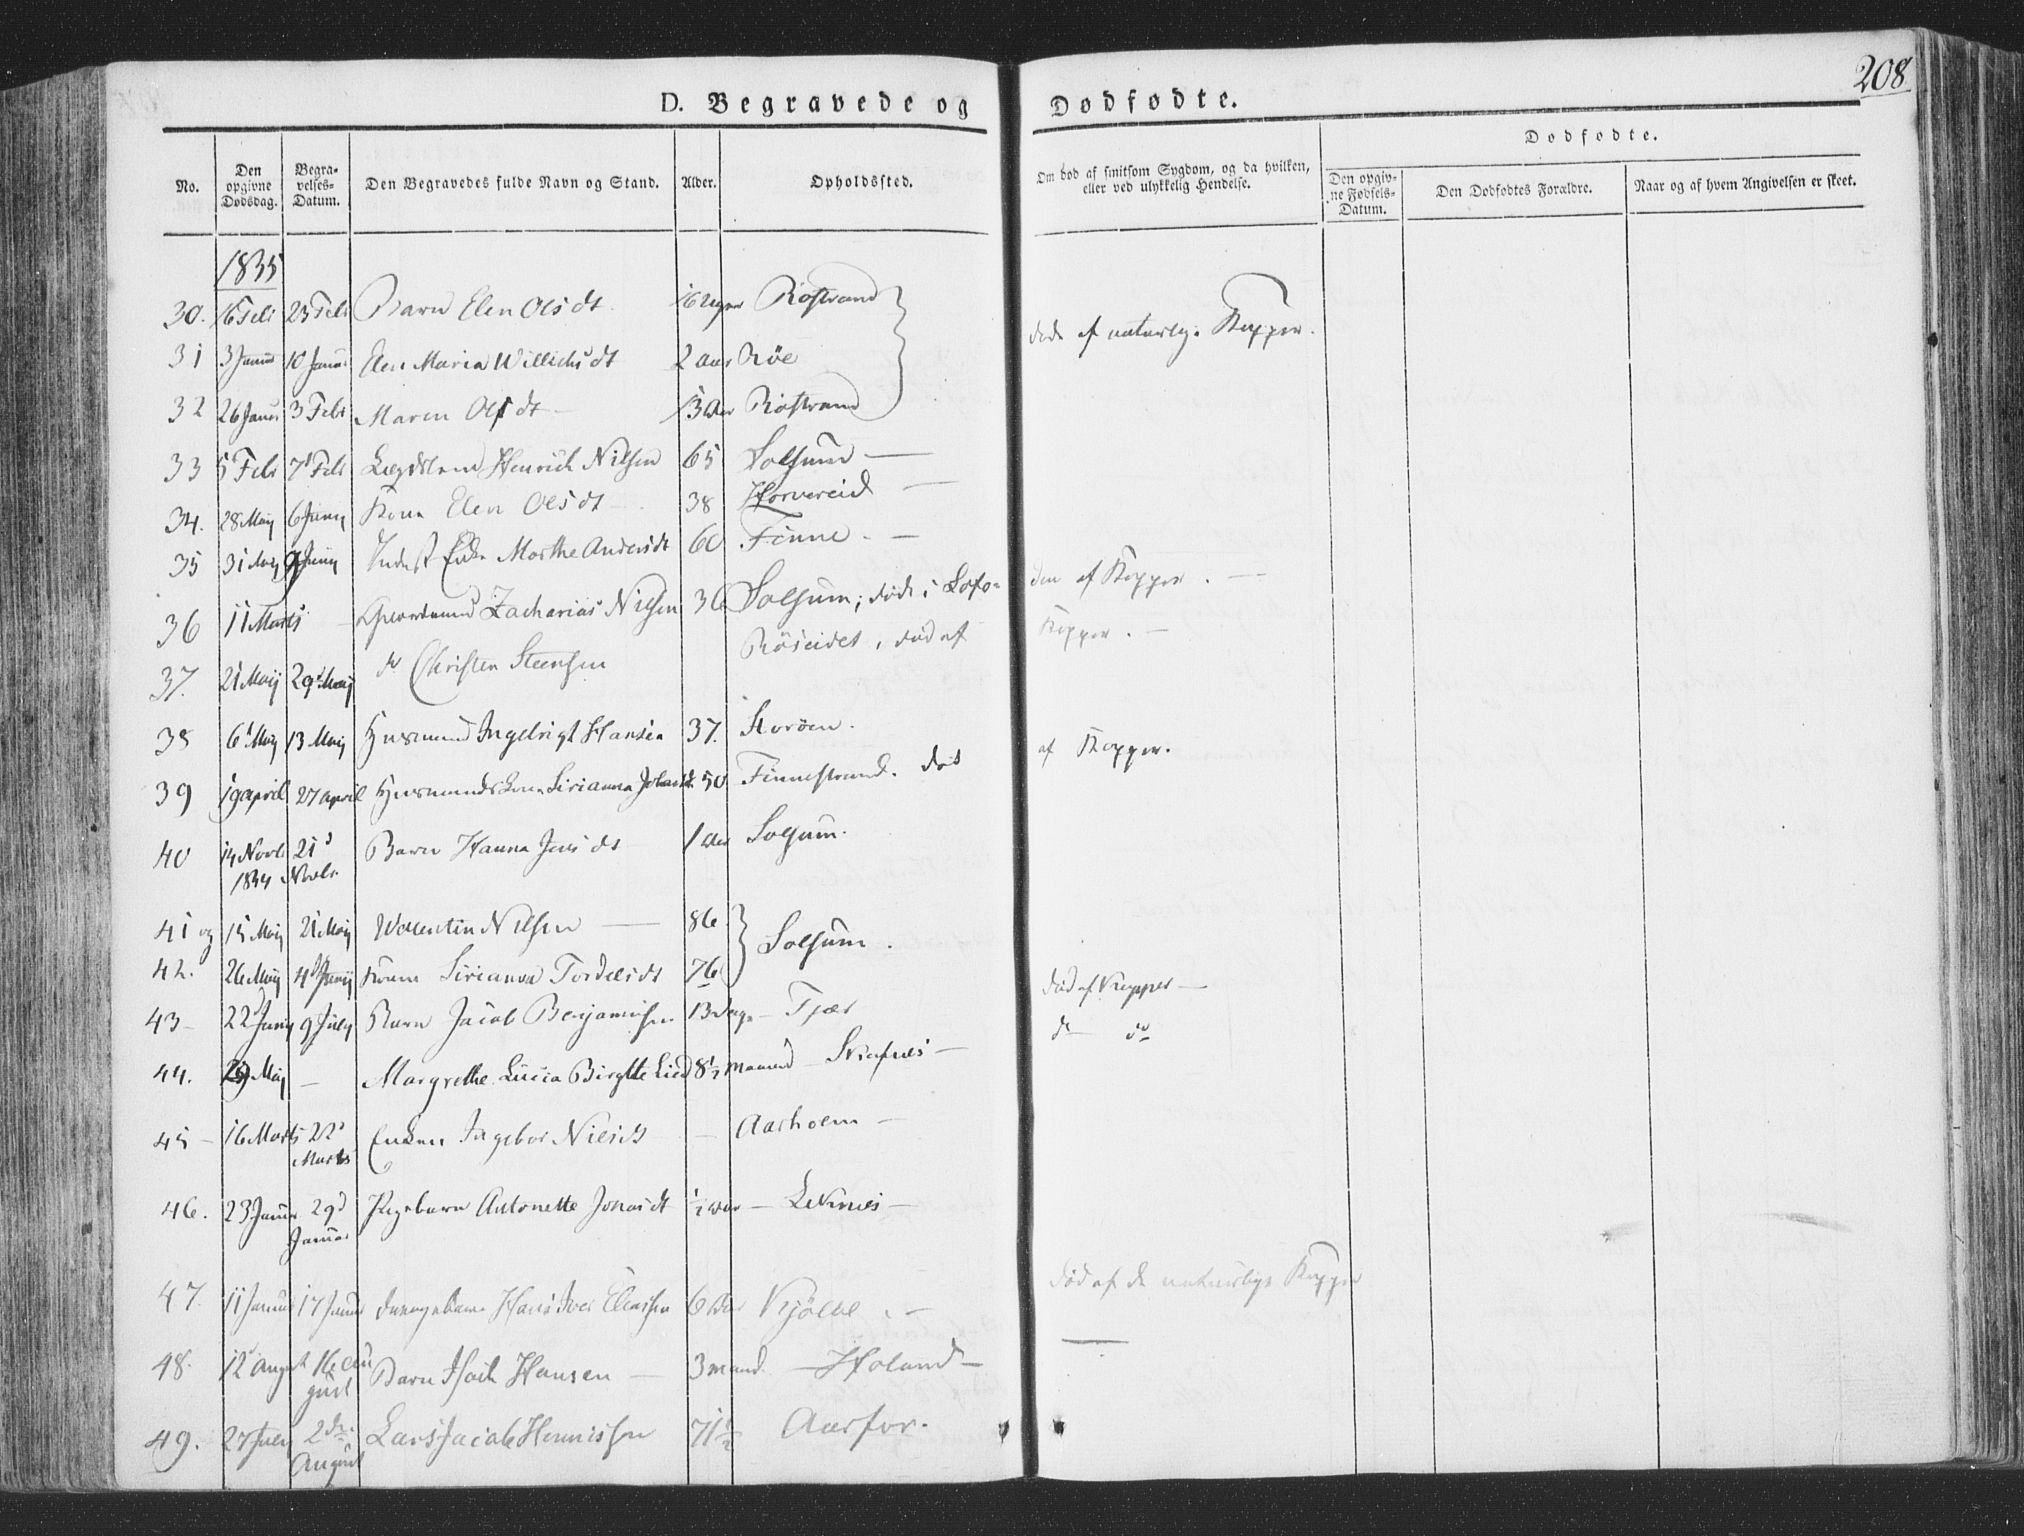 208
D. Begravede og Dødfødte.
No. Den opgivne Dødsdag. Begravelses-Datum. Den Begravedes fulde Navn og Stand. Alder. Opholdssted. Om død af smitsom Sygdom, og da hvilken, eller ved ulykkelig Hendelse. Dødfødte.
Den opgivne Fødsels-Datum. Den Dødfødtes Forældre. Naar og af hvem Angivelsen er skeet.
1835
30. 16 Feb 23 Feb Barn Elen Olsdt 16 Uger Røstrand døde af naturlige Kopper.
31 3 Janu 10 Janu Elen Maria Willichsdt 2 aar Röe
32 26 Janu 3 Feb Maren Olsdt — 13 Aar Røstrand
33 5 Feb 7d Feb Lægdslem Henrich Nilsen 65 Solsum —
34. 28 Maij 6 Junij Kone Elen Olsdt — 38 Horvereid —
35 31 Maij 9 Junij Inderst Enke Marthe Andersdt 60 Finne. —
36 11 Marts — Zacharias Nilsen 36 Solsum; døde i Lofo- den af Kopper. —
37. 21 Maij 29d Maij do Christen Steensen Röseidet, død af Kopper. —
38 6d Maij 13 Maij Huusmand Ingebrigt Hansen 37. Storöen.
39 19 april 27 april Huusmandskone Sirianna 50 Finnestrand. død af Kopper.
40 14 Novb 1834 21d Novbr. Barn Hanna Jensdt 1 Aar Solsum.
41 og 15 Maij 21 Maij Valentin Nilsen — 86
42. 26 Maij 4d Junij Kone Sirianna Tordelsdt 76 Solsum.
43 — 22 Junij 9 July Barn Jacob Benjaminsen 13 Dage — Tjær død af Kopper —
44. 29 Maij — Margrethe Lucia Birgitte Lied 8½ Maaned — do do
45 — 16 Marts 22d Marts Enken Ingebor Nilsdt — Aarholm —
46. 23 Janu 29d Janua Pigebarn Antonette Jonasdt ½ aar — Leknes —
47. 11 Janua 17 Janu Drengebarn Hans Iver Eliassen 6 Aar Kjölve. — død af de naturlige Kopper
48. 12 August 16 August Barn Isach Hansen — 3 maned — Holand — —
49. 27 July 2den August Lars Jacob Hennissen 71½ Aarfor.